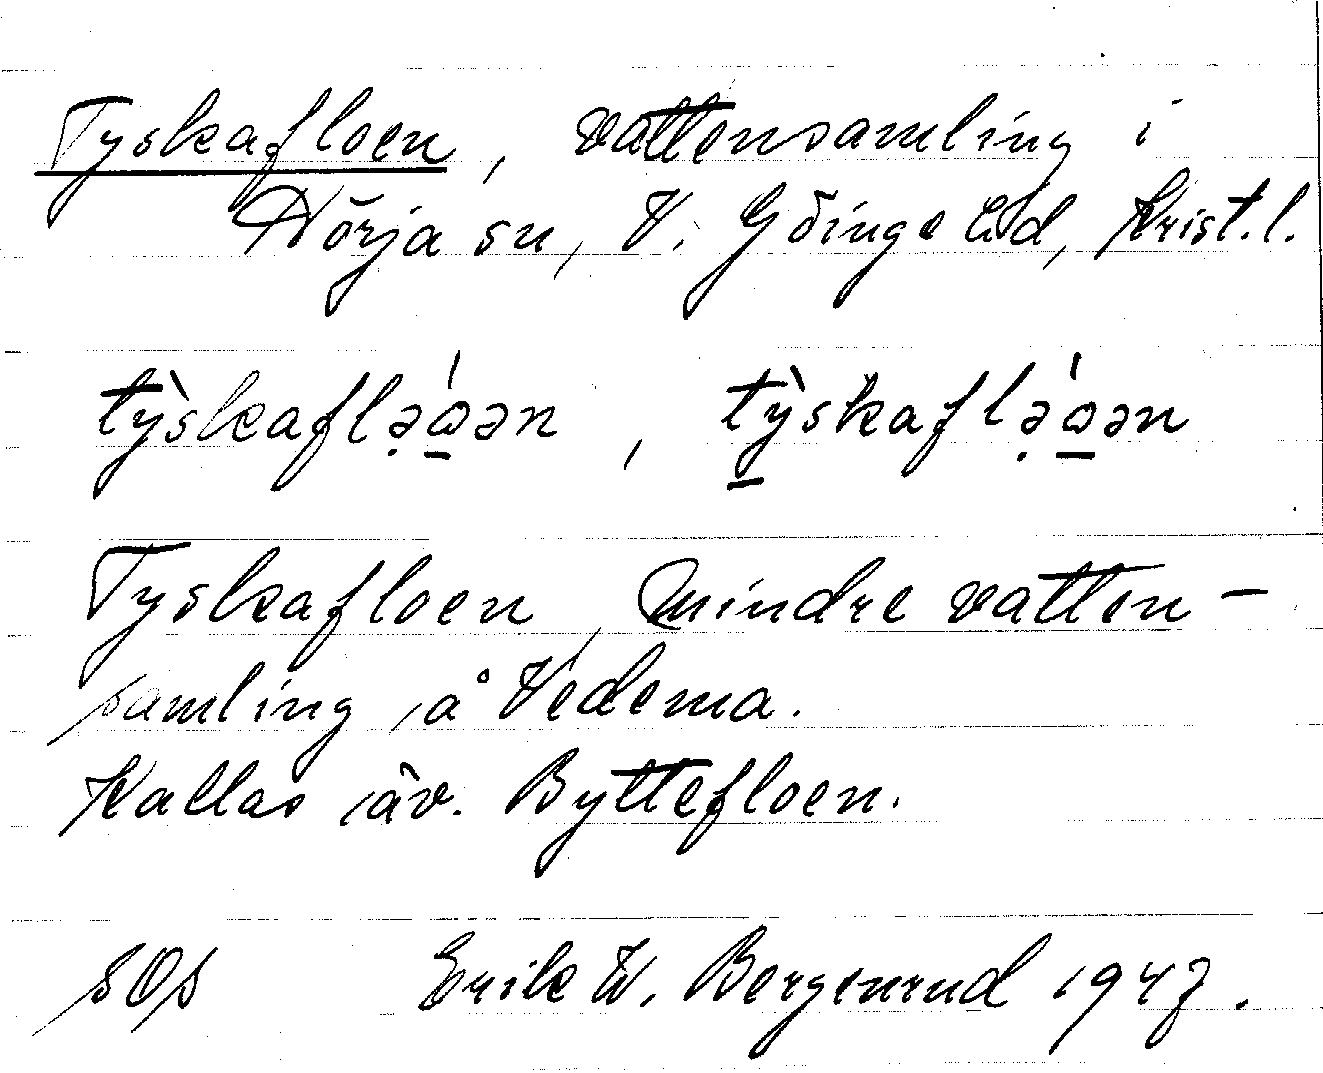 Tyskafloen, vattensamling i
Nörja sn, V. Göinge hd, Krist.l.
tỳskaflə̣́o̲ən, tỳ̲skaflə̣́o̲ən
Tyskafloen, mindre vatten-
samling å Vedema.
Kallas äv. Byttefloen.
sOs Erik W. Bergenrud 1947.